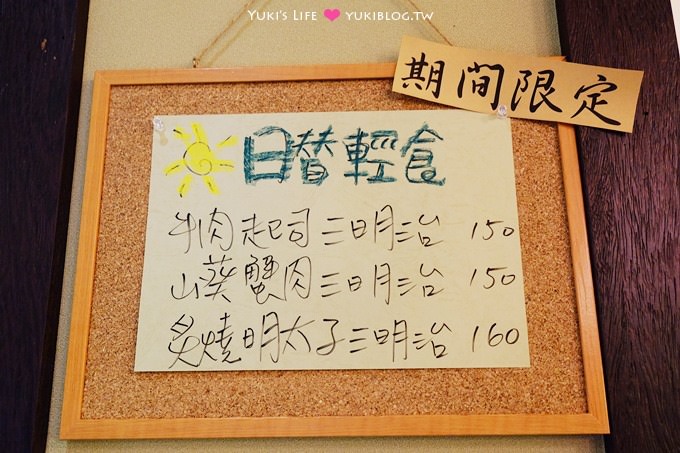 Yuki's Life ❤ yukiblog.tw
期間限定
日替輕食
牛肉起司三明治 150
山葵蟹肉三明治 150
炙燒明太子三明治 160